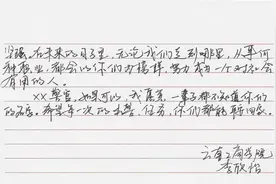 坚强。在未来的日子里，无论我们走到哪里，从事何
种职业，都会以你们为榜样，努力成为一个对社会
有用的人。
××警官，如果可以，我愿意一辈子都不知道你们
的名字。希望每一次的出警、任务，你们都能平安回家。
云南工商学院
李欣怡